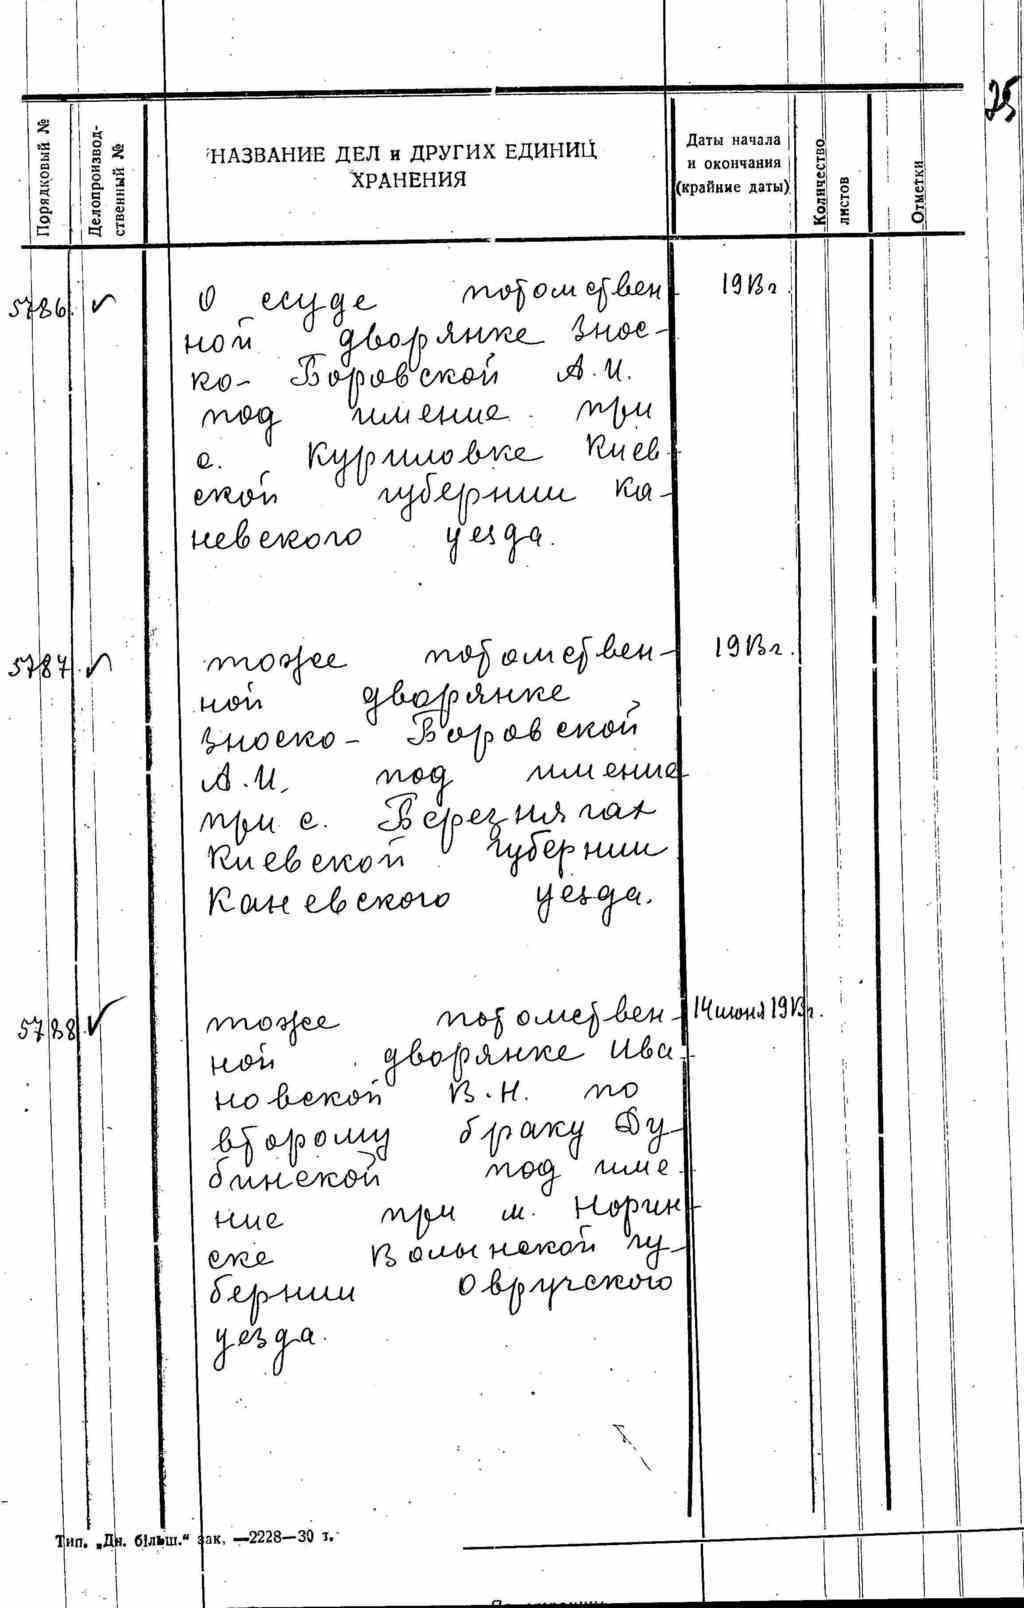 25
Порядковый №
Делопроизвод-
ственный №
НАЗВАНИЕ ДЕЛ и ДРУГИХ ЕДИНИЦ
ХРАНЕНИЯ
Даты начала
и окончания
(крайние даты)
Количество
листов
Отметки
5786 ✓ О ссуде потомствен- 1913 г.
ной дворянке Знос-
ко-Боровской А.И.
под имение при
с. Куриловке Киев-
ской губернии Ка-
невского уезда.
5787 ✓ тоже потомствен- 1913 г.
ной дворянке
Зноско-Боровской
А.И. под имение
при с. Березнягах
Киевской губернии
Каневского уезда.
5788 ✓ тоже потомствен- 14 июня 1913 г.
ной дворянке Ива-
новской В.Н. по
второму браку Ду-
бинской под име-
ние при м. Норин-
ске Волынской гу-
бернии Овручского
уезда.
Тип. „Дн. більш." зак. —2228—30 т.